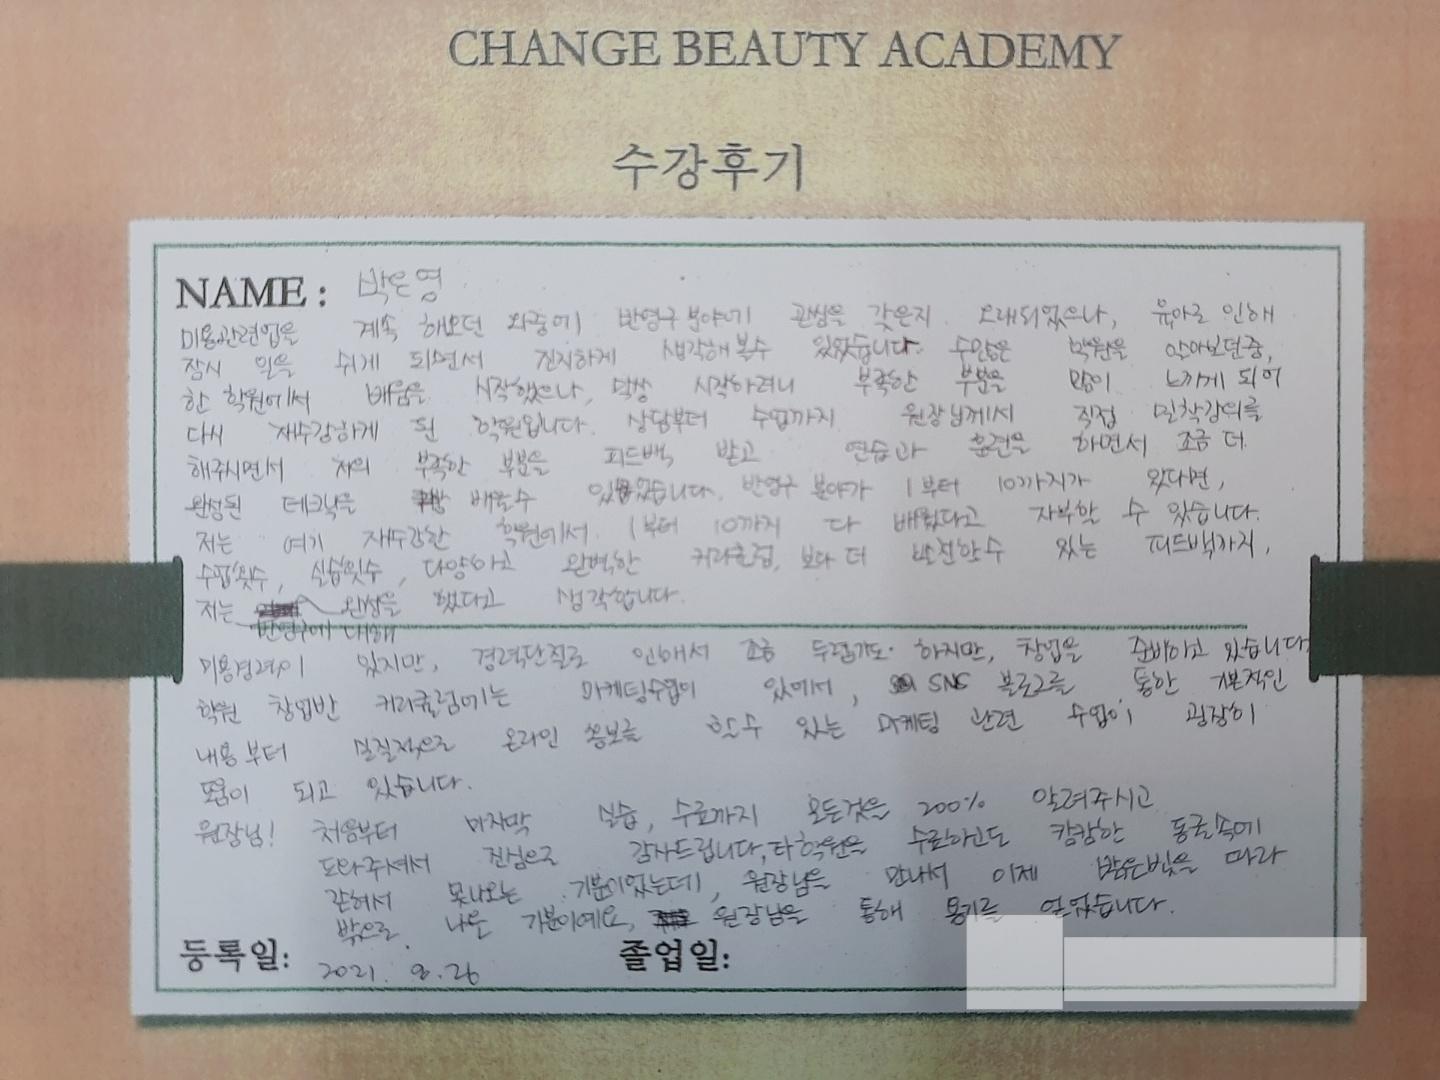 CHANGE BEAUTY ACADEMY
수강후기
NAME : 박은영
미용관련업을 계속 해오던 와중에 반영구 분야에 관심을 갖은지 오래되었으나, 육아로 인해
잠시 일을 쉬게 되면서 진지하게 생각해 볼수 있었습니다. 수많은 학원을 알아보던중,
한 학원에서 배움은 시작했으나, 막상 시작하려니 부족한 부분을 많이 느끼게 되어
다시 재수강하게 된 학원입니다. 상담부터 수업까지 원장님께서 직접 밀착강의를
해주시면서 저의 부족한 부분을 피드백 받고 연습과 훈련을 하면서 조금 더
완성된 테크닉을 배울수 있었습니다. 반영구 분야가 1부터 10까지가 있다면,
저는 여기 재수강한 학원에서 1부터 10까지 다 배웠다고 자부할 수 있습니다.
수업횟수, 실습횟수, 다양하고 완벽한 커리큘럼, 보다 더 발전할수 있는 피드백까지,
저는 완성을 했다고 생각합니다.
반영구에 대해
미용경력이 있지만, 경력단절로 인해서 조금 두렵기도 하지만, 창업을 준비하고 있습니다
학원 창업반 커리큘럼에는 마케팅수업이 있어서, SNS 블로그를 통한 기본적인
내용부터 실질적으로 온라인 홍보를 할수 있는 마케팅 관련 수업이 굉장히
도움이 되고 있습니다.
원장님! 처음부터 마지막 실습, 수료까지 모든것을 200% 알려주시고
도와주셔서 진심으로 감사드립니다, 타학원을 수료하고도 캄캄한 동굴속에
갇혀서 못나오는 기분이었는데, 원장님을 만나서 이제 밝은빛을 따라
밖으로 나온 기분이에요, 원장님을 통해 용기를 얻었습니다.
등록일: 2021. 8. 26 졸업일: